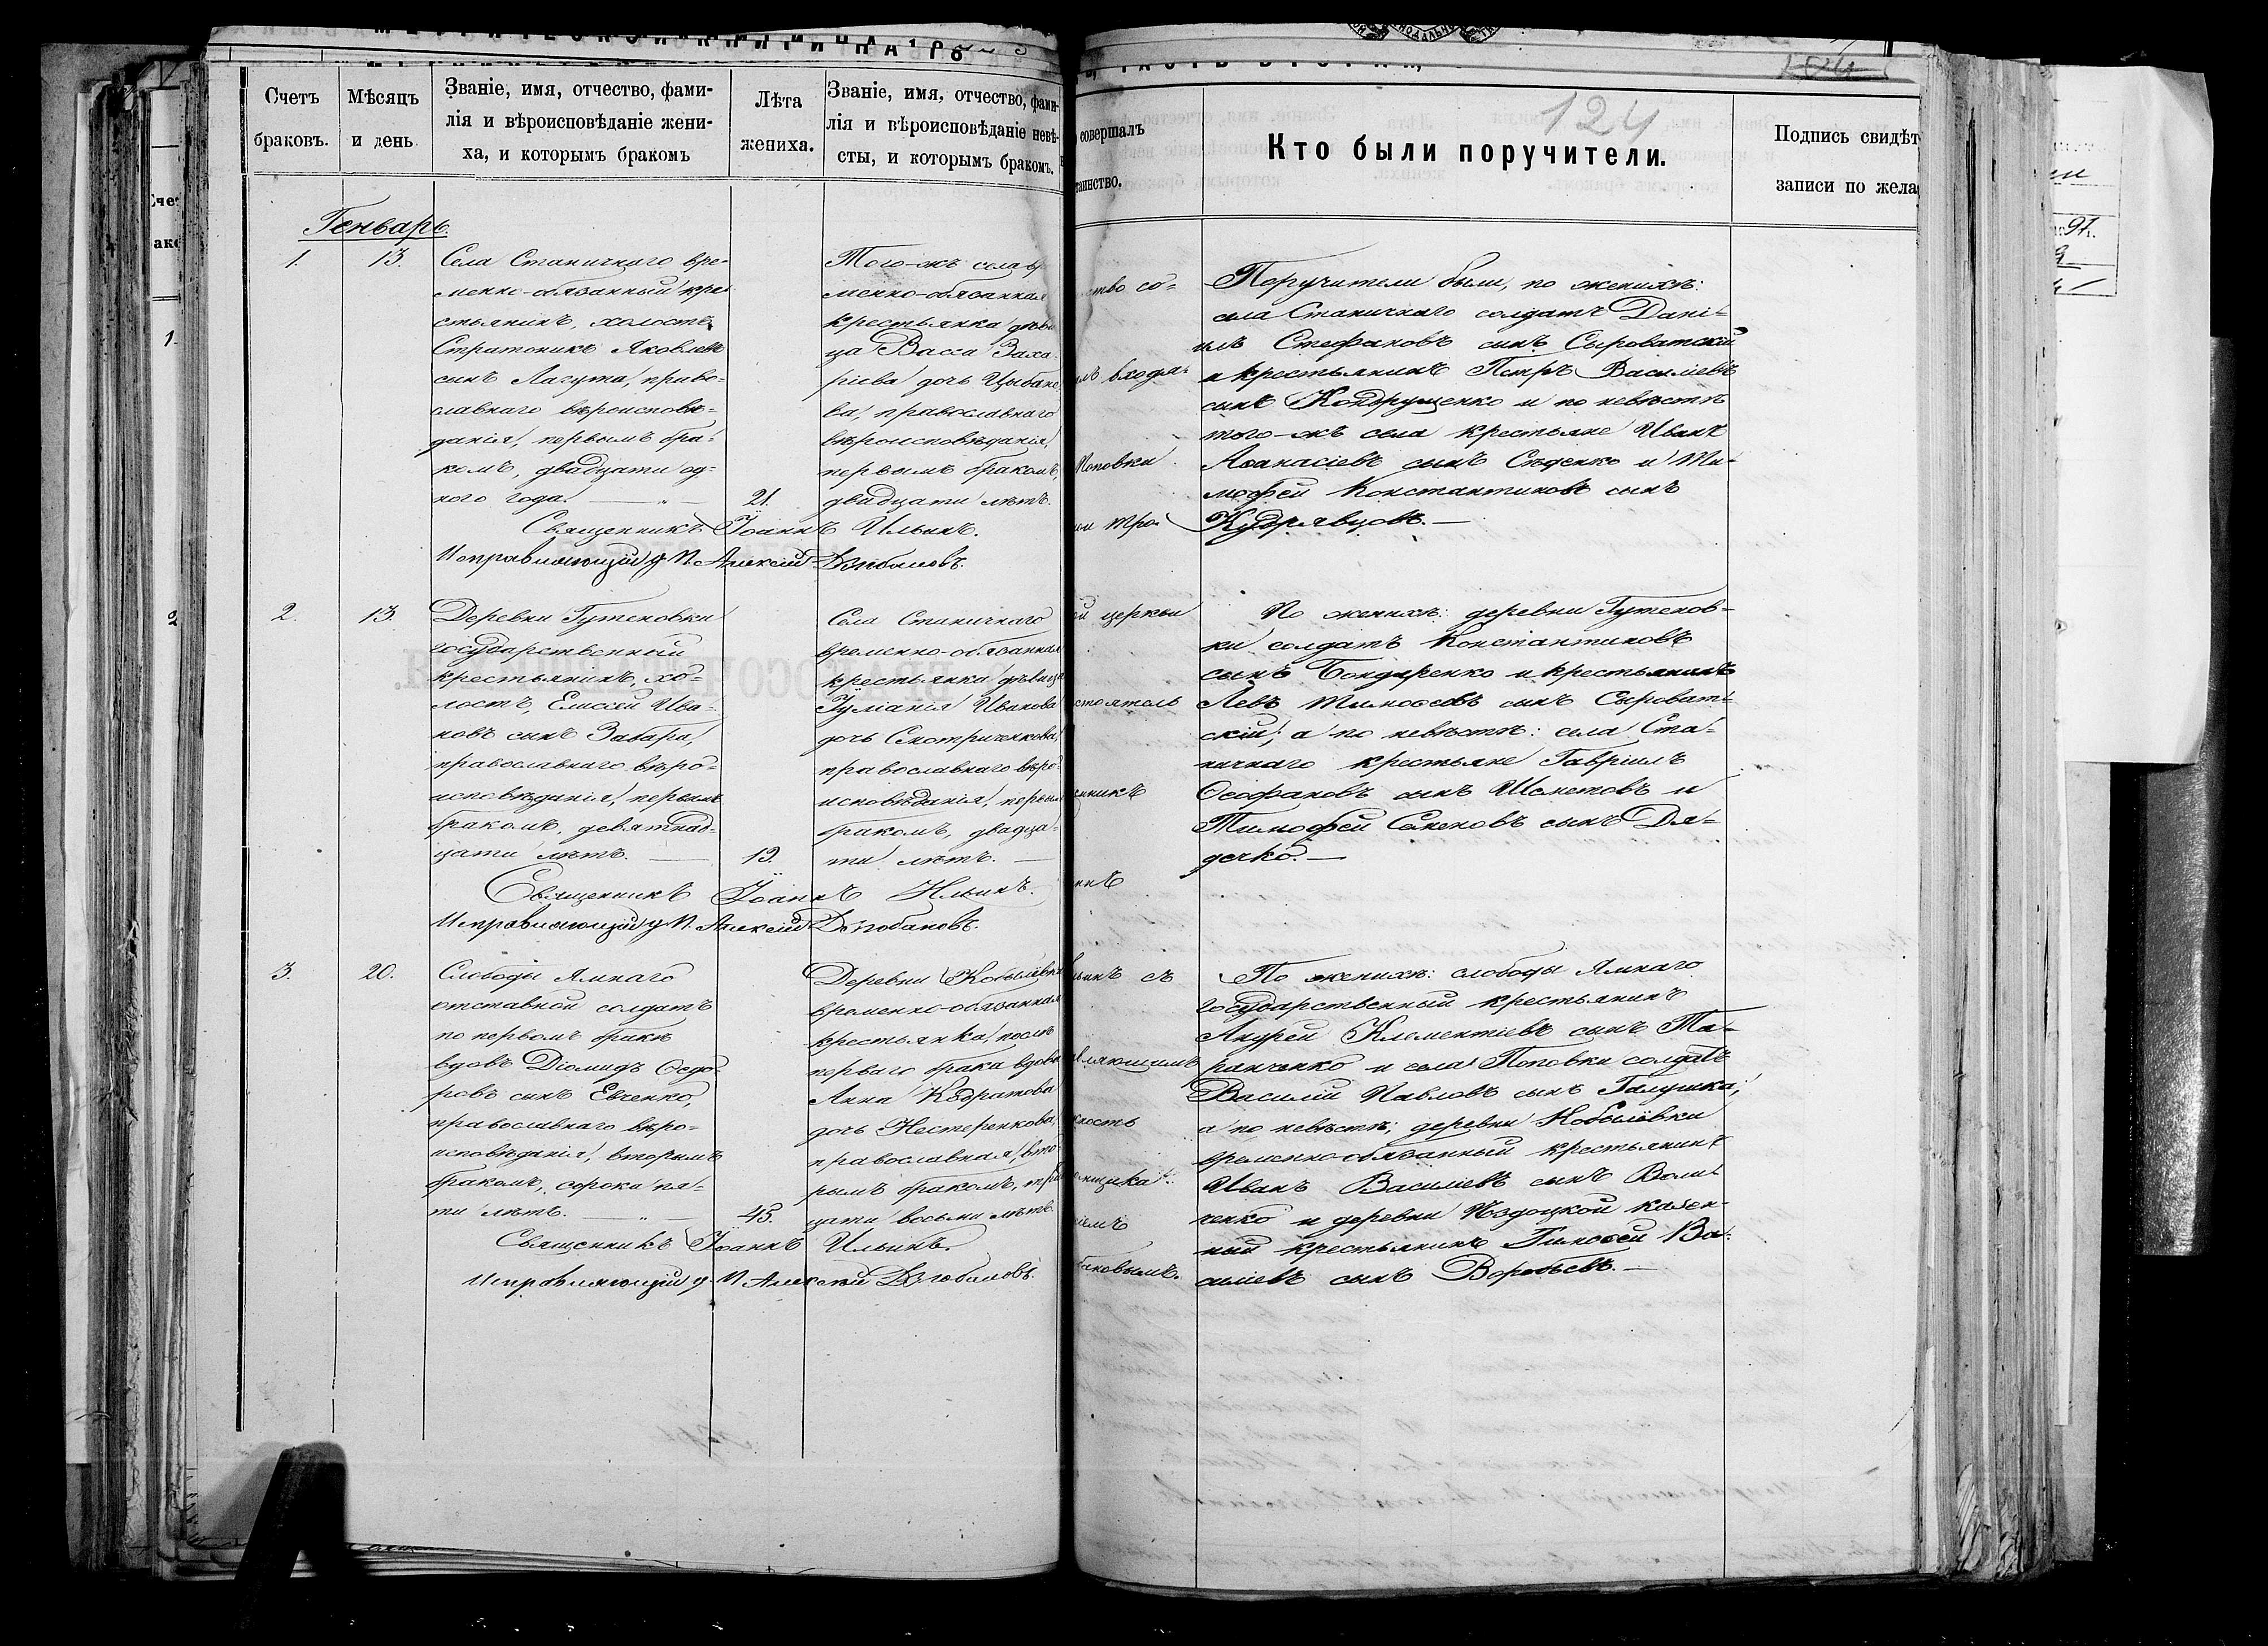 Счетъ
браковъ.
Мѣсяцъ
и день.
Званіе, имя, отчество, фами-
лія и вѣроисповѣданіе жени-
ха, и которымъ бракомъ
Лѣта
жениха.
Званіе, имя, отчество, фами-
лія и вѣроисповѣданіе невѣ-
сты, и которымъ бракомъ.
Генварь.
1.
13.
Села Станичнаго вре-
менно-обязанный кре
стьянинъ, холостъ
Стратоникъ Яковлевъ
сынъ Лагута, право-
славнаго вѣроисповѣ-
данія, первымъ бра-
комъ, двадцати од-
ного года.
21.
Того-жъ села вр
менно-обязанная
крестьянка дѣви
ца Васса Заха-
ріева дочь Цыбане
ва, православнаго
вѣроисповѣданія,
первымъ бракомъ,
двадцати лѣтъ.
Священникъ Іоаннъ Ильинъ.
Исправляющій д. П. Алексій
2.
13.
Деревни Гутеновки
государственный
крестьянинъ, хо-
лостъ, Елисей Ива-
новъ сынъ Забара,
православнаго вѣро-
исповѣданія, первымъ
бракомъ, девятнад-
цати лѣтъ.
19.
Села Станичнаго
временно-обязанная
крестьянка дѣвица
Іуліанія Иванова
дочь
православнаго вѣро-
исповѣданія, первым
бракомъ, двадца-
ти лѣтъ.
Священникъ Іоаннъ Ильинъ.
Исправляющій д. П. Алексій
3.
20.
Слободы Ямнаго
отставной солдатъ
по первомъ бракѣ
вдовъ Діомидъ Ѳедо-
ровъ сынъ Евченко,
православнаго вѣро-
исповѣданія, вторымъ
бракомъ, сорока пя-
ти лѣтъ.
45.
Деревни Кобылевки
временно-обязанная
крестьянка, послѣ
перваго брака вдова
Анна Кодратова
дочь Нестеренкова,
православная, вто
рымъ бракомъ, трид
цати восьми лѣтъ
Священникъ Іоаннъ Ильинъ.
Исправляющій д. П. Алексій
совершалъ
таинство.
124
Кто были поручители.
Подпись свидѣт
записи по жела
ство со-
входя-
Поповки
церкви
стоятель
нникъ
ннъ
ьинъ съ
вляющимъ
ность
мъ
Поручители были, по женихѣ:
села Станичнаго солдатъ Дані-
илъ Стефановъ сынъ Сыроватскій
и крестьянинъ Петръ Василіевъ
сынъ Кондрущенко и по невѣстѣ
того-жъ села крестьяне Иванъ
Аѳанасіевъ сынъ Сѣденко и Ти-
мофей Константиновъ сынъ
Кудрявцовъ.
По женихѣ: деревни Гутенов-
ки солдатъ Константиновъ
сынъ Бондаренко и крестьянинъ
Левъ Тимоѳеевъ сынъ Сыроват-
скій; а по невѣстѣ: села Ста-
ничнаго крестьяне Гавріилъ
Ѳеофановъ сынъ Шеметовъ и
Тимофей Семеновъ сынъ Дя-
дечко.
По женихѣ: слободы Ямнаго
государственный крестьянинъ
Андрей Климентіевъ сынъ Та-
ранченко и села Поповки солдатъ
Василій Павловъ сынъ Галушка;
а по невѣстѣ; деревни Кобылевки
временно-обязанный крестьянинъ
Иванъ Василіевъ сынъ Воли-
ченко и деревни казен-
ный крестьянинъ Тимоѳей Ва-
силіевъ сынъ Воробьевъ.